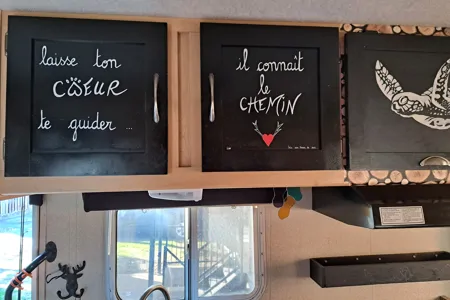 laisse ton
CŒUR
te guider ...
il connaît
le
CHEMIN